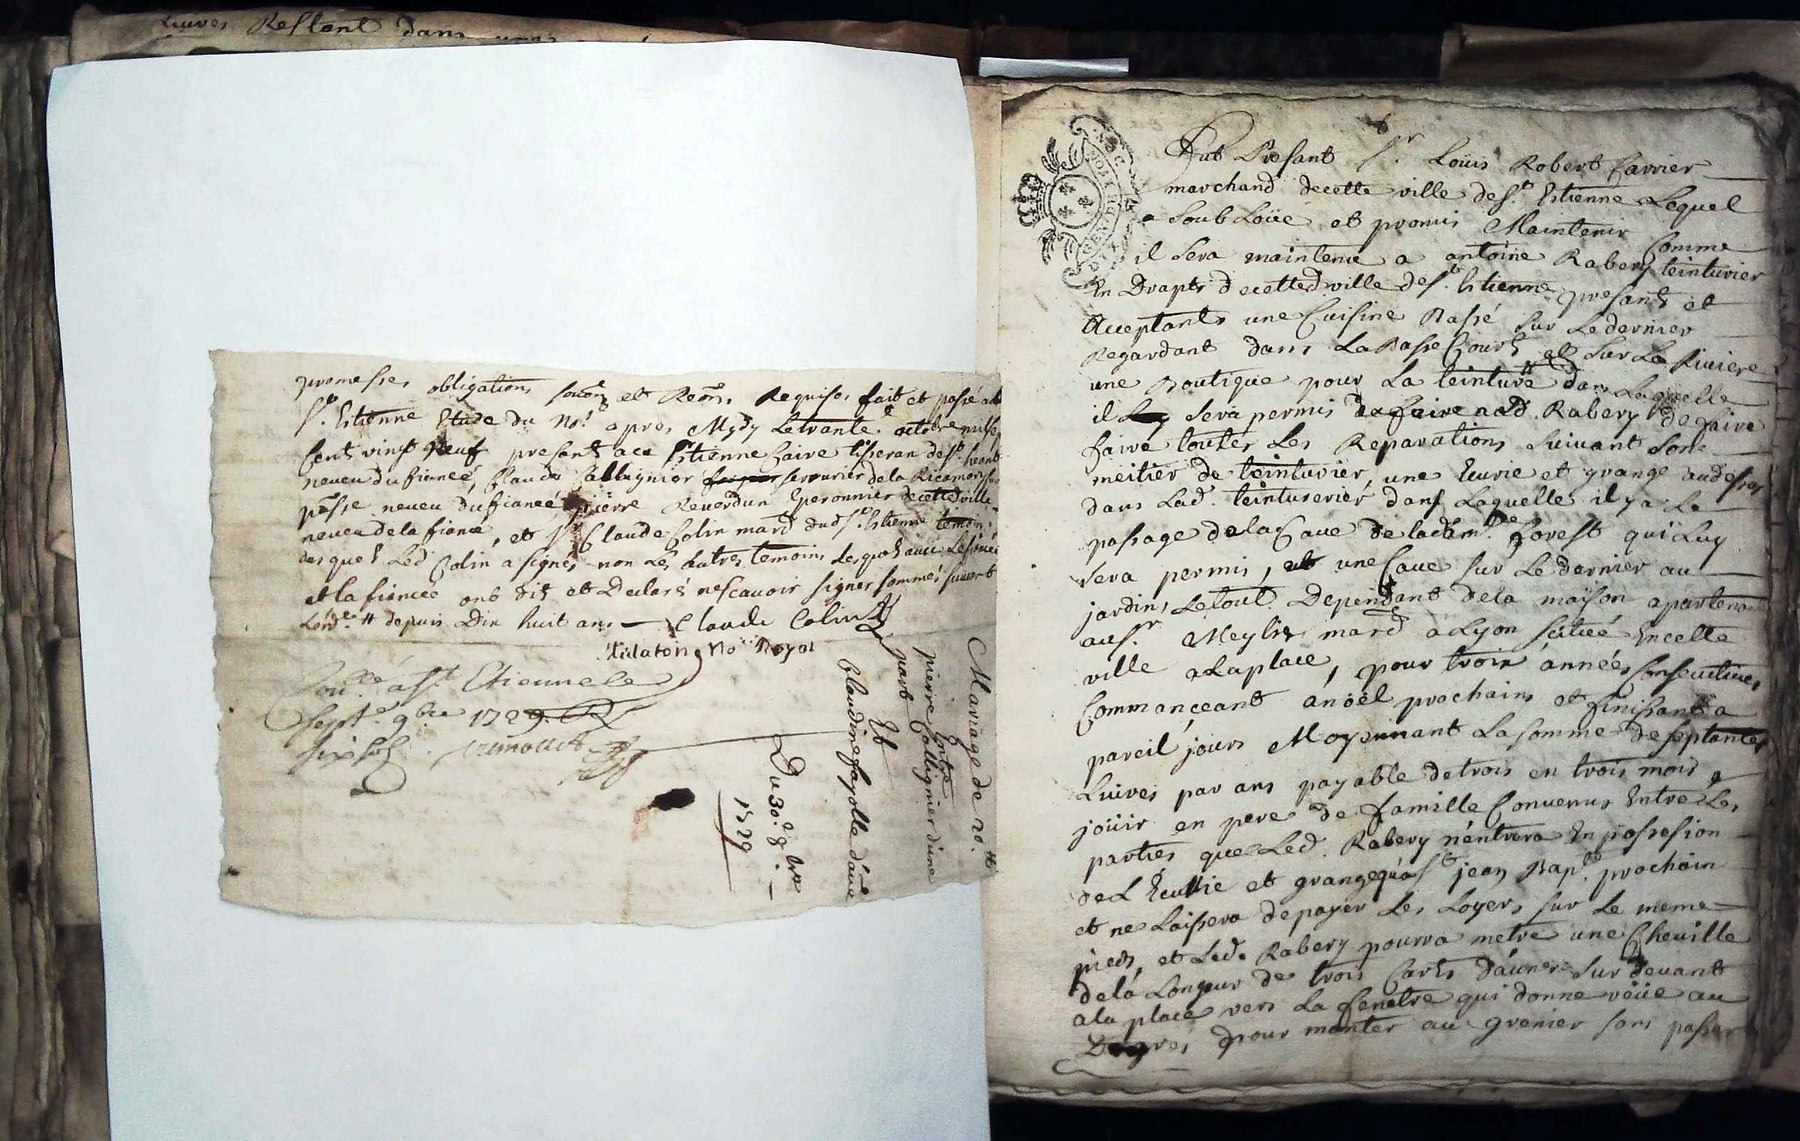 Livres Restent dans
promesses obligations soum et Reōn. Requises fait et passé a
St. Estienne Etude du No.re apres Mydy Le trante. octobre mil sept
Cent vingt neuf presents a ce Estienne faire tisseran de St. heand
neveu du fiancé, Claude Callignier serrurier de la Ricamarie
pssē neveu du fiancé pierre Reverdun Eperonnier de cette ville
neveu de la fiancé, et Sr Claude Colin marḋ dud St. Estienne temoin
des quels Led Colin a signés non Les autres temoins Lesquels avec Le fiancé
et la fiancee ont dit et Declaré ne scavoir signer sommés suivant
Lord.ce depuis Dix huit ans — Claude Colin
No.re Royal
Con.lle à St. Etienne le
Sept.e 9bre 1729.
six sols
Mariage de 20.tt
Entre
pierre Callignier d'une
part
Et
Claudine fayolle d'aūe
Du 30.e 8.bre
1729
GEN DE LYON
Fut Presant Sr. Loüis Robert Carrier
marchand de cette ville de St. Estienne Lequel
a Soub Loüé et promis Maintenir Comme
il Sera maintenu a antoine Rabery teinturier
En Drapts de cetted ville de St. Estienne presant et
Acceptants une Cuisine Bassé sur Le dernier
Regardant dans La Basse Court et Sur La Riviere
une Boutique pour La teinture dans Laquelle
il Sera permis aud. Rabery de faire
faire toutes Les Reparations Suivant Son
meitier de teinturier, une Eurie et grange audessus
dans Lad. teinturerier, dans Laquelle il y a Le
passage de la Cave de lad dem.lle forest qui Luy
Sera permis, et une Cave sur Le dernier au
jardin, Le tout Dependant de la maison apartenant
au Sr. Meylier marḋ a Lyon scitué En cette
ville a La place, pour trois années Consecutives
Commançeant a noël prochain et finissant a
pareil jours Moyennant La somme de septantes
Livres par ans payable de trois en trois mois a
joüir en pere de famille Convenus Entre Les
parties que Led. Rabery n'entrera En possesion
de L Ecurie et grange qu'a St. jean Bap.te prochain
et ne Laissera de payer Les Loyers sur Le meme
pieds, et Led. Rabery pourra metre une Cheville
de la Longeur de trois Carts d'aune sur devant
a la place vers La fenetre qui donne veüe au
Degres pour monter au grenier sans passer